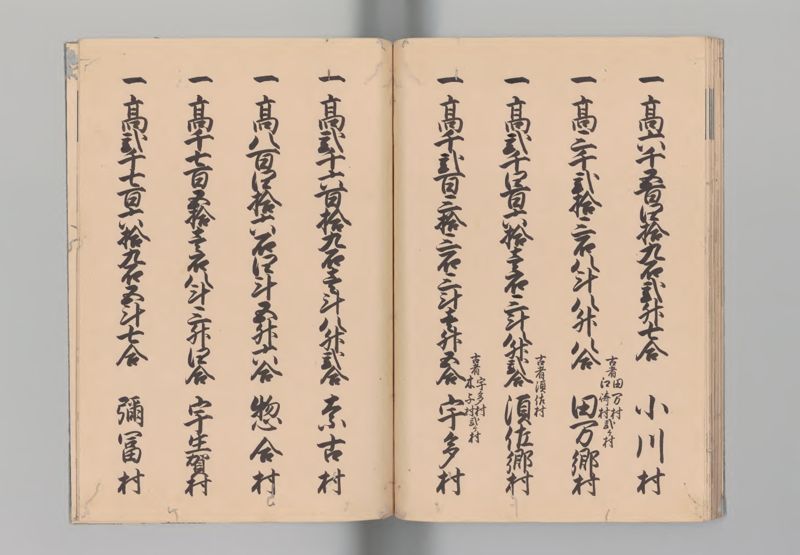 一 高六千五百四拾九石弐升七合 小川村
一 高三千弐拾三石八斗八升八合 古者田万村江崎村弐ケ村 田万郷村
一 高弐千四百六拾壱石三斗八升弐合 古者須佐村 須佐郷村
一 高千弐百三拾三石三斗壱升五合 古者宇多村木与村弐ケ村 宇多村
一 高弐千六百拾九石壱斗八升弐合 奈古村
一 高八百四拾六石四斗五升六合 惣合村
一 高千七百五拾壱石八斗三升四合 宇生賀村
一 高弐千七百六拾九石五斗七合 彌冨村